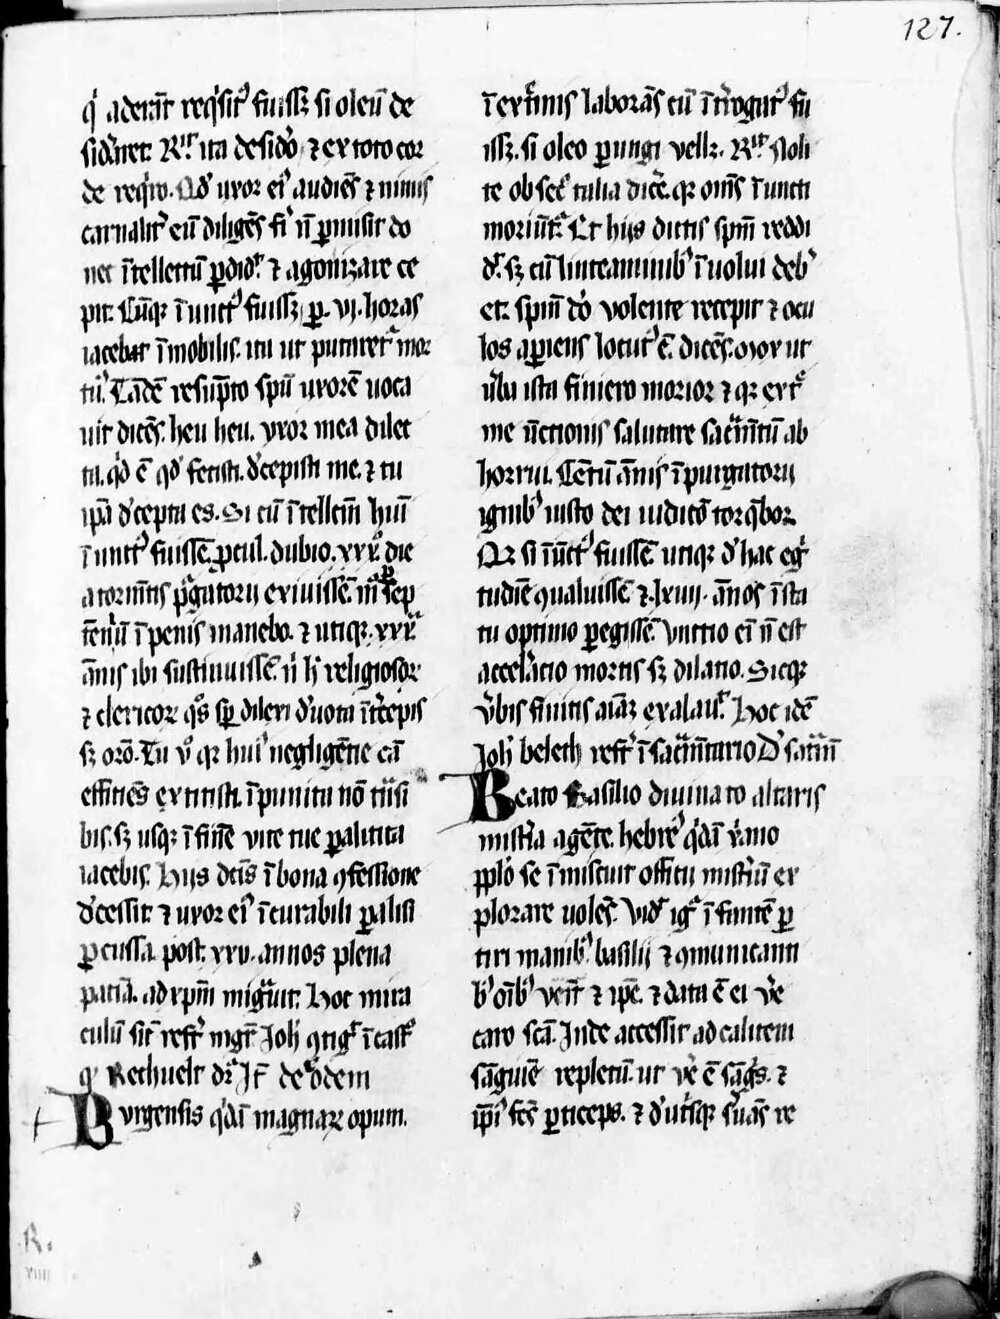 127.
q̇ aderāt req̇sit᷒ fuissꝫ si oleū de
sid̓aret. Rͥᵗ. ita desid̓o ⁊ ex toto cor
de req̇ro. Qd̓ uxor ei᷒ audiēs ⁊ nimis
carnalit̓ eū diligēs fi᷒ n̄ ꝑmisit do
nec ītellectū ꝑdid̓. ⁊ agonizare ce
pit. Cūqꝫ īunct᷒ fuissꝫ ꝑ. vj. horas
iacebat īmobilis. ita ut putaret̓ mor
tu᷒. Tādē resūpto spū uxorē uoca
uit dicēs. heu heu. vxor mea dilec
ta. qd̓ ē qd̓ fecisti. d̓cepisti me. ⁊ tu
ip̄a d̓cepta es. Si eū ītellcm̄ hūi
īunct᷒ fuissē ꝓcul. dubio. xxxᵒ. die
a tormētis pͥgatorij exiuissē. m̊ sep
tēnͥū ī penis manebo. ⁊ utiqꝫ. xxxᵃ.
ānis ibi sustinuissē. n̍ h̓ religiosoꝝ
⁊ clericoꝝ q̊s sꝑ dilexi d̓uota īt̓cepis
sꝫ orō. Tu v̊ qꝫ hui᷒ negligētie cā
efficiēs extitisti. īpunita nō tūsi
bis. sꝫ usqꝫ ī finē vite tue ꝑalitica
iacebis. Hijs dc̄is ī bona ꝯfessione
d̓cessit. ⁊ uxor ei᷒ īcurabili ꝑalisi
ꝑcussa. post. xxv. annos plena
patīa. ad xpm̄ migͣuit. Hoc mira
culū sit̄ refr̄t mgr̄ Joh̓ ꝯtig̓ ī cast̓
q̇ Rethuelt dr̄ Jt̄ de eodem
Burgensis q̇dā magnaꝝ opum.
ī ext̓mis laborās cū īt̓rogat᷒ fu
issꝫ. si oleo ꝑungi vellꝫ. Rͥᵗ. Noli
te obsec̓ talia dic̓e. qꝫ om̄s īuncti
moriūt᷒. Et hijs dictis spm̄ reddi
d̓. sꝫ cū linteaminib᷒ īuolui deb᷒
et. spm̄ do̓ volente recepit ⁊ ocu
los aꝑiens locut᷒ ē. dicēs. Mox ut
v̓ba ista finiero morior ⁊ qꝫ ext̓
me ūctionis salutare sacͣmtū ab
horrui. Cētū ānis ī purgatorij
ignib᷒ iusto dei iudico̓ torq̄bor.
Qꝫ si īūct᷒ fuissē utiqꝫ d̓ hac eg̓
tudīe ꝯualuissē ⁊. lxiiij. ānos ī sta
tu optimo ꝑegissē. Vnctio eī n̄ est
accel̓acio mortis sꝫ dilatio. Sicqꝫ
v̓bis finitis aīaꝫ exalau᷒. Hoc idē
Joh̓ beleth refr̄t ī sacͣmtario D̓ sacͣm̄
Beato Basilio diuina to altaris
mist̓ia agēte. hebre᷒ q̇dā x̓iano
pp̄lo se īmiscuit officij mist̓iū ex
plorare uolēs. Vid̓ igͥ̓ ī fantē ꝑ
tiri manib᷒ basilij ⁊ ꝯmunicanti
b᷒ oīb᷒ venit ⁊ ip̄e. ⁊ data ē ei v̓e
caro scā. Inde accessit ad calicem
sāguiē repletū. ut v̓e ē sāg̓s. ⁊
ip̄i᷒ fc̄s ꝑticeps. ⁊ d̓ ut̓sqꝫ s̓uās re
R.
viiii